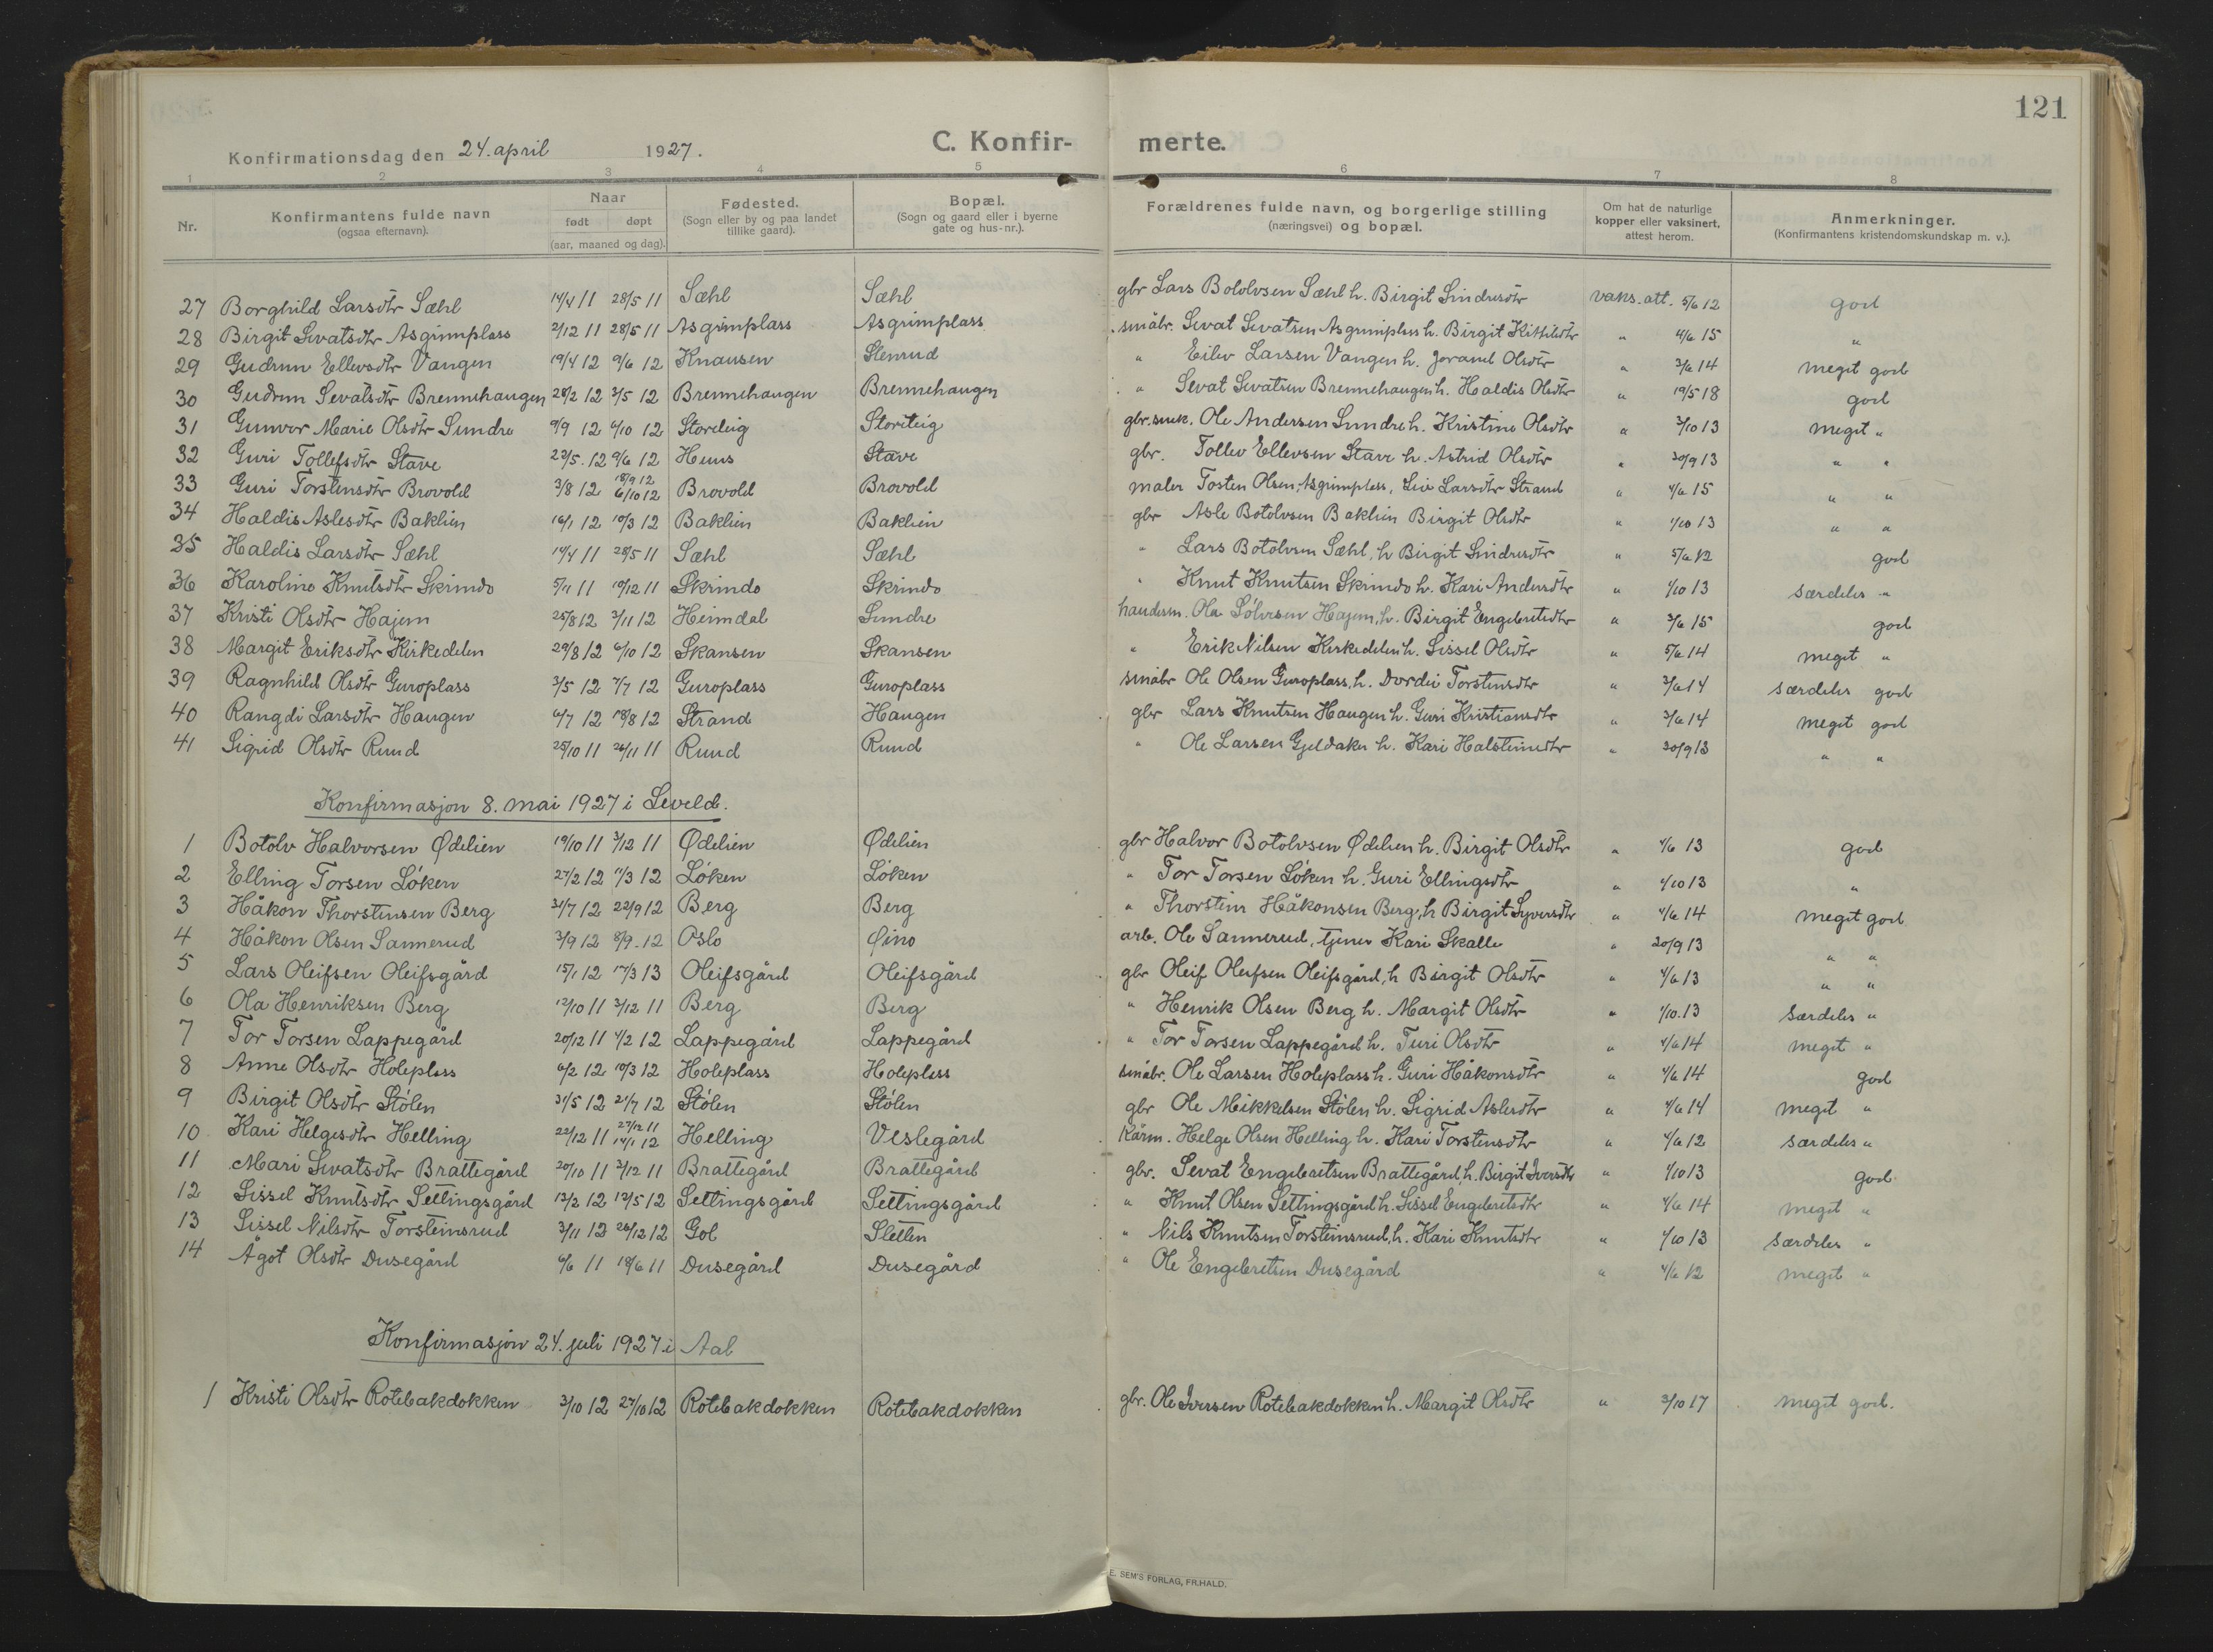 121
C. Konfir- merte.
Konfirmationsdag den 24. april 1927.
1 2 3 4 5 6 7 8
Nr. Konfirmantens fulde navn (ogsaa efternavn). Naar født døpt (aar, maaned og dag). Fødested. (Sogn eller by og paa landet tillike gaard). Bopæl. (Sogn og gaard eller i byerne gate og hus-nr.). Forældrenes fulde navn, og borgerlige stilling (næringsvei) og bopæl. Om hat de naturlige kopper eller vaksinert, attest herom. Anmerkninger. (Konfirmantens kristendomskundskap m. v.).
27 Borghild Larsdtr Sæhl 14/4 11 28/5 11 Sæhl Sæhl gbr Lars Botolvsen Sæhl h. Birgit Sindresdtr vaks. att. 5/6 12 god
28 Birgit Sevatsdtr Asgrimplass 2/12 11 28/5 11 Asgrimplass Asgrimplass småbr. Sevat Sevatsen Asgrimplass h. Birgit Kittilsdtr " 4/6 15 "
29 Gudrun Ellevsdtr Vangen 19/4 12 9/6 12 Knausen Stenrud " Eilev Larsen Vangen h. Jorand Olsdtr " 3/6 14 meget god
30 Gudrun Sevatsdtr Brennehaugen 28/2 12 3/5 12 Brennehaugen Brennehaugen " Sevat Sevatsen Brennehaugen h. Haldis Olsdtr " 19/5 18 god
31 Gunvor Marie Olsdtr Sundre 9/9 12 6/10 12 Storeteig Storiteig gbr. snek. Ole Andersen Sundre h. Kristine Olsdtr " 3/10 13 meget "
32 Guri Tollefsdtr Stave 23/5. 12 9/6 12 Heus Stave gbr. Tollev Ellevsen Stave h. Astrid Olsdtr " 30/9 13 " "
33 Guri Torstensdtr Brovold 3/8 12 18/9 12 6/10 12 Brovold Brovold maler Tosten Olsen Asgrimplass, Liv Larsdtr Strand " 4/6 15 " "
34 Haldis Aslesdtr Baklien 16/1 12 10/3 12 Baklien Baklien gbr Asle Botolvsen Baklien Birgit Olsdtr " 1/10 13 " "
35 Haldis Larsdtr Sæhl 14/4 11 28/5 11 Sæhl Sæhl " Lars Botolvsen Sæhl, h Birgit Sindresdtr " 5/6 12 god
36 Karoline Knutsdtr Skrindo 5/11 11 10/12 11 Skrindo Skrindo " Knut Knutsen Skrindo h. Kari Andersdtr " 1/10 13 særdeles "
37 Kristi Olsdtr Hajem 25/8 12 3/11 12 Heimdal Sundre handelsm. Ola Sølvesen Hajem, h. Birgit Engebretsdtr " 3/6 15 god
38 Margit Eriksdtr Kirkedelen 29/8 12 6/10 12 Skansen Skansen " Erik Nilsen Kirkedelen h. Sissel Olsdtr " 5/6 14 meget "
39 Ragnhild Olsdtr Guroplass 3/5 12 7/7 12 Guroplass Guroplass småbr Ole Olsen Guroplass, h. Dordei Torstensdtr " 3/6 14 særdeles god
40 Rangdi Larsdtr Haugen 6/7 12 18/8 12 Strand Haugen gbr Lars Knutsen Haugen h. Guri Kristiansdtr " 3/6 14 meget god
41 Sigrid Olsdtr Ruud 25/10 11 26/11 11 Ruud Ruud " Ole Larsen Gjeldaker h. Kari Halsteinsdtr " 30/9 13 " "
Konfirmasjon 8. mai 1927 i Leveld.
1 Botolv Halvorsen Ødelien 19/10 11 3/12 11 Ødelien Ødelien gbr Halvor Botolvsen Ødelien h. Birgit Olsdtr " 4/6 13 god
2 Elling Torsen Løken 27/2 12 11/3 12 Løken Løken " Tor Torsen Løken h. Guri Ellingsdtr " 1/10 13 "
3 Håkon Thorsteinsen Berg 31/7 12 22/9 12 Berg Berg " Thorstein Håkonsen Berg, h Birgit Syversdtr " 4/6 14 meget god
4 Håkon Olsen Sannerud 3/9 12 8/9. 12 Oslo Øino arb. Ole Sannerud, tjener Kari Skalle " 20/9 13 " "
5 Lars Oleifsen Oleifsgård 15/1 12 17/3 13 Oleifsgård Oleifsgård gbr Oleif Oleifsen Oleifsgård, h Birgit Olsdtr " 4/6 13 " "
6 Ola Henriksen Berg 12/10 11 3/12 11 Berg Berg " Henrik Olsen Berg h. Margit Olsdtr " 1/10. 13 særdeles "
7 Tor Torsen Lappegård 20/12 11 4/2 12 Lappegård Lappegård " Tor Torsen Lappegård h. Turi Olsdtr " 4/6 14 meget "
8 Anne Olsdtr Holeplass 6/2 12 10/3 12 Holeplass Holeplass småbr. Ole Larsen Holeplass h. Guri Håkonsdtr " 4/6 14 god
9 Birgit Olsdtr Stølen 31/5 12 21/7 12 Stølen Stølen gbr Ole Mikkelsen Stølen h. Sigrid Aslesdtr " 4/6 14 meget "
10 Kari Helgesdtr Helling 22/12 11 27/12 11 14/1 12 Helling Veslegård Kårm. Helge Olsen Helling h. Kari Torstensdtr " 4/6 12 særdeles "
11 Mari Sevatsdtr Brattegård 20/10 11 3/12 11 Brattegård Brattegård gbr. Sevat Engebretsen Brattegård, h. Birgit Iversdtr " 1/10 13 god
12 Sissel Knutsdtr Settingsgård 13/2 12 12/5 12 Settingsgård Settingsgård " Knut Olsen Settingsgård h. Sissel Engebretsdtr " 4/6 14 meget "
13 Sissel Nilsdtr Torsteinsrud 3/11 12 26/12 12 Gol Sletten " Nils Knutsen Torsteinsrud, h. Kari Knutsdtr " 1/10 13 særdeles "
14 Ågot Olsdtr Dusegård 6/6 11 18/6 11 Dusegård Dusegård " Ole Engebretsen Dusegård " 4/6 12 meget "
Konfirmasjon 24. juli 1927 i Aal
1 Kristi Olsdtr Rotebakdokken 3/10 12 27/10 12 Rotebakdokken Rotebakdokken gbr. Ole Iversen Rotebakdokken h. Margit Olsdtr " 3/10 17 meget god.
E. SEM'S FORLAG, FR.HALD.